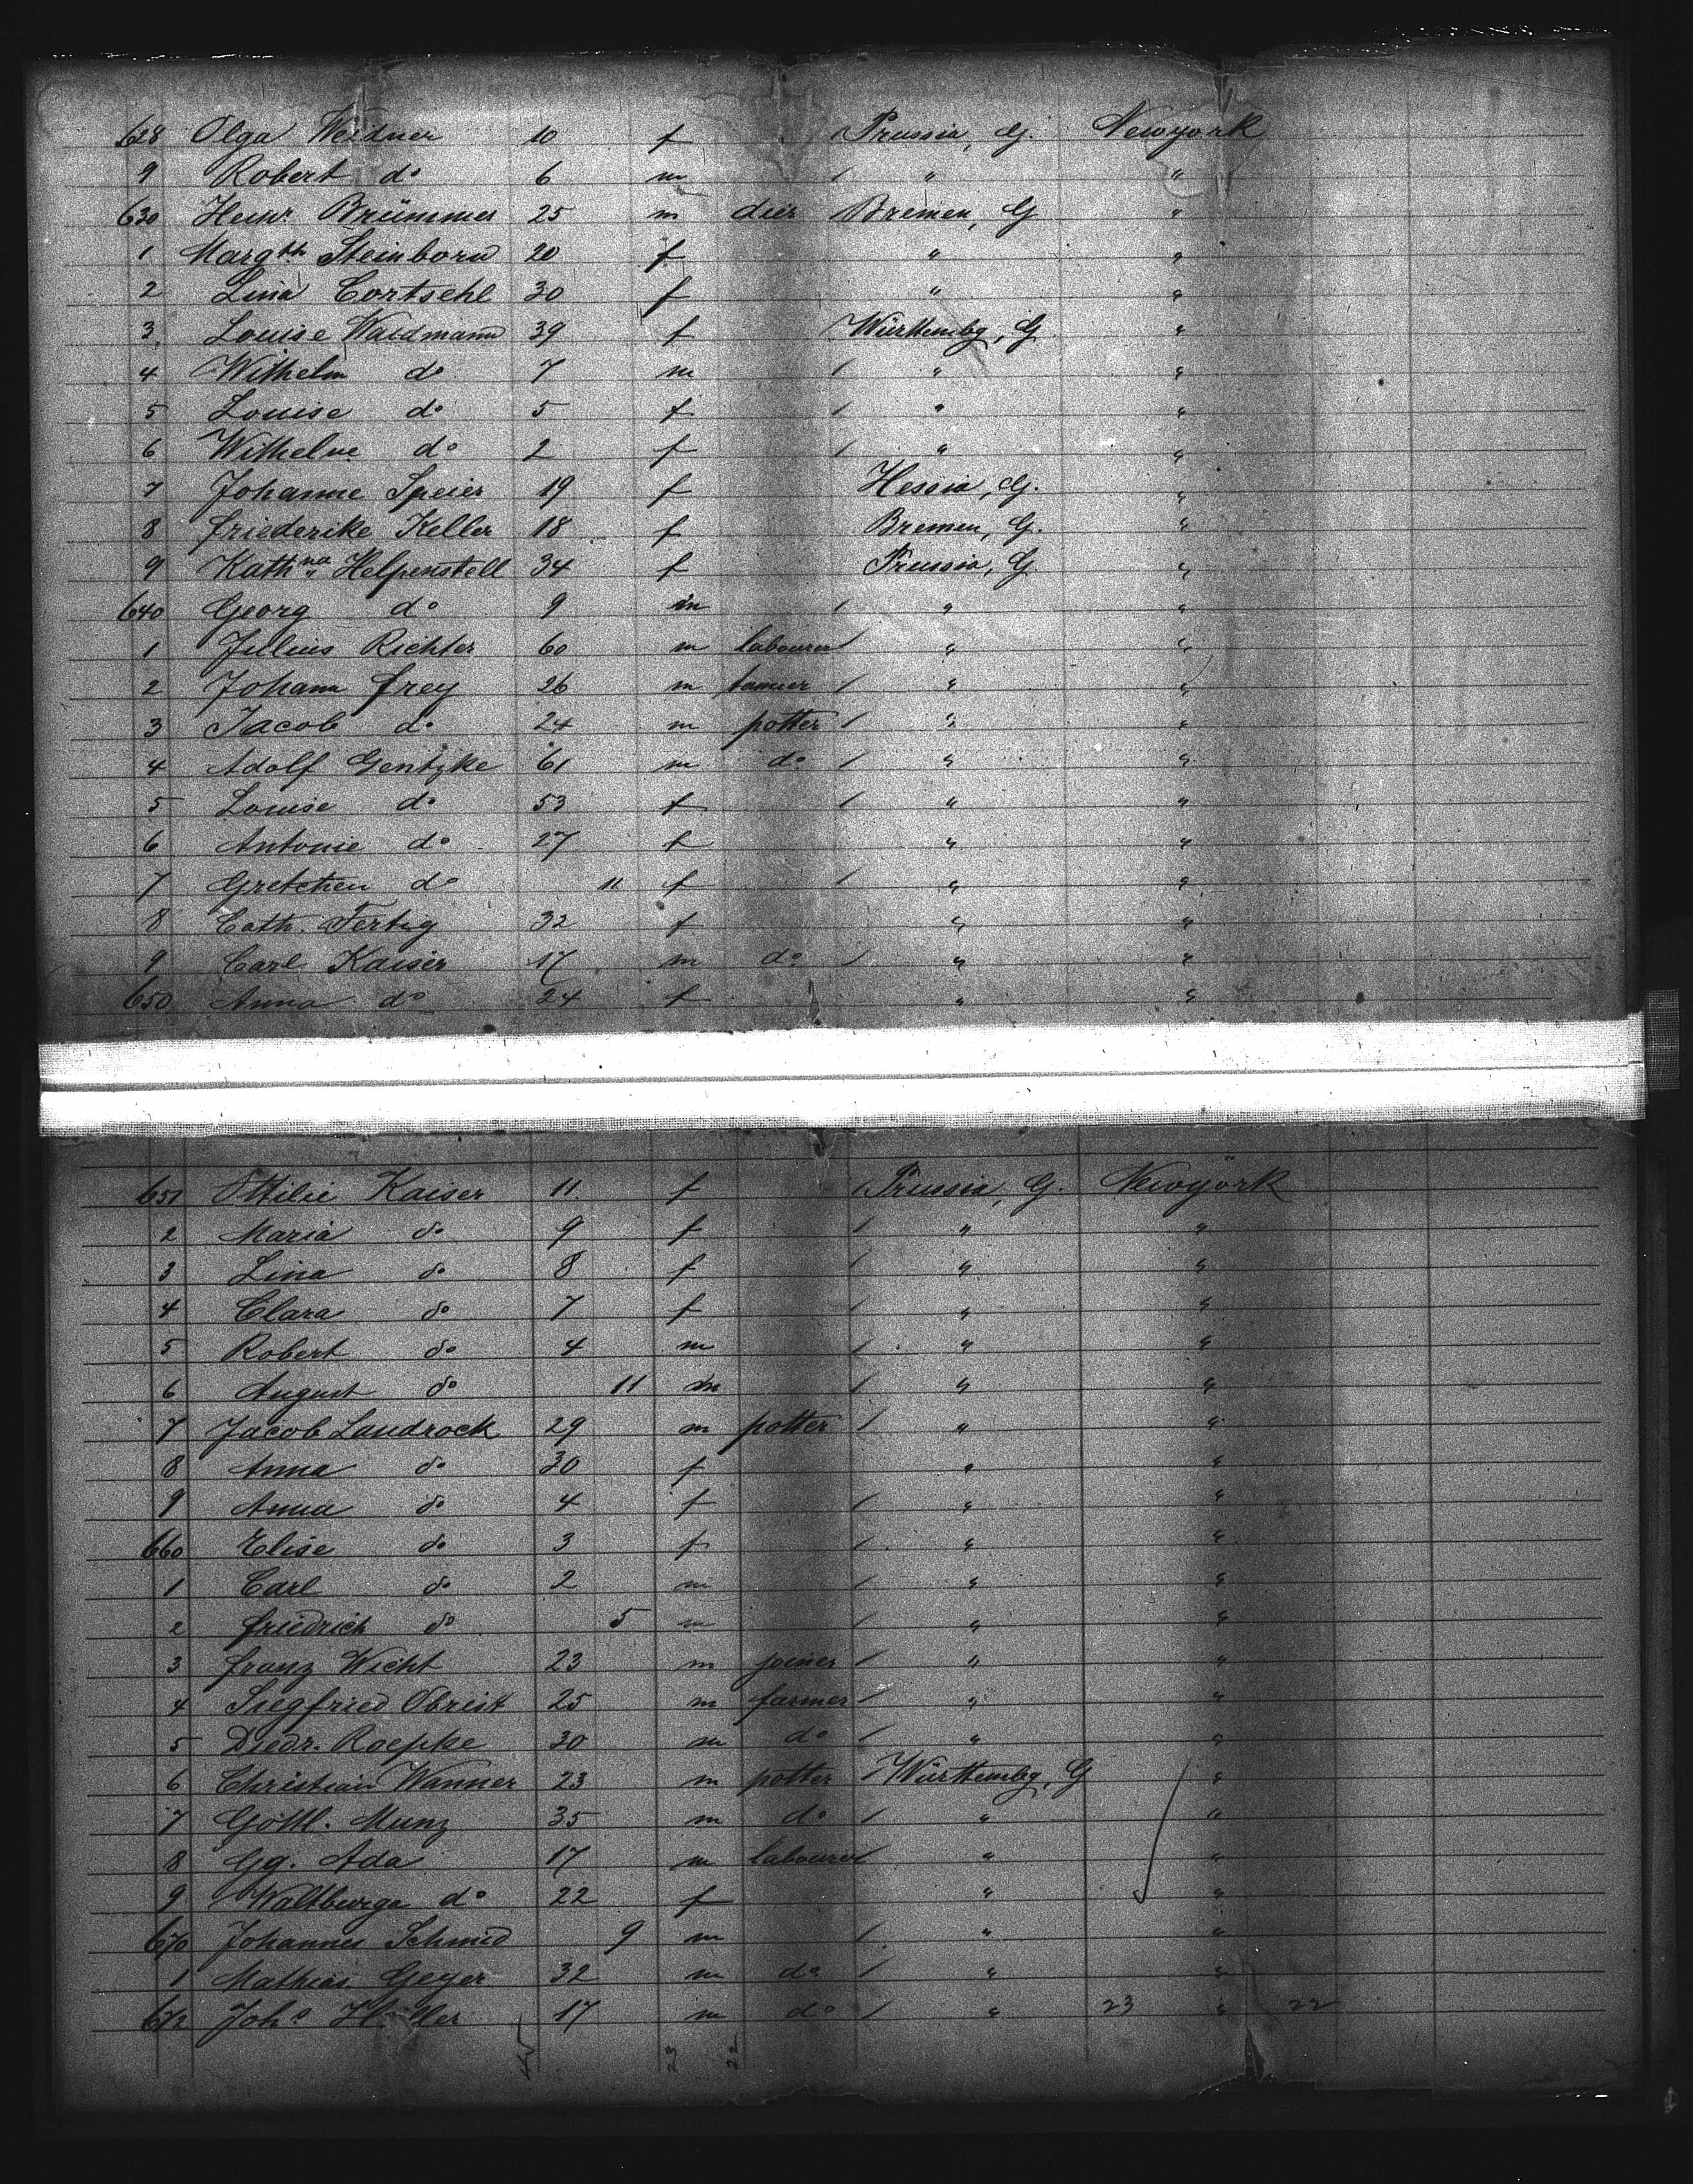 628 Olga Weidner 10 f Prussia, G. Newyork
9 Robert do 6 m " "
630 Heinr. Brümmer 25 m dier Bremen, G "
1 Margth Steinborn 20 f " "
2 Lina Cortsehl 30 f " "
3 Louise Waidmann 39 f Württembg, G "
4 Wilhelm do 7 m " "
5 Louise do 5 f " "
6 Wilhelne do 2 f " "
7 Johanne Speier 19 f Hessia, G. "
8 Friederike Keller 18 f Bremen, G. "
9 Kathna Helpenstell 34 f Prussia, G "
640 Georg do 9 m " "
1 Julius Richter 60 m labourer " "
2 Johann Frey 26 m tanner " "
3 Jacob do 24 m potter " "
4 Adolf Gentzke 61 m do " "
5 Louise do 53 f " "
6 Antonie do 27 f " "
7 Gretchen do 11 f " "
8 Cath. Fertig 32 f " "
9 Carl Kaiser 17 m do " "
650 Anna do 24 f " "
651 Ottilie Kaiser 11 f Prussia, G. Newyork
2 Maria do 9 f " "
3 Lina do 8 f " "
4 Clara do 7 f " "
5 Robert do 4 m " "
6 August do 11 m " "
7 Jacob Landrock 29 m potter " "
8 Anna do 30 f " "
9 Anna do 4 f " "
660 Elise do 3 f " "
1 Carl do 2 m " "
2 Friedrich do 5 m " "
3 Franz Wicht 23 m joiner " "
4 Siegfried Obrist 25 m farmer " "
5 Diedr. Roepke 30 m do " "
6 Christian Wanner 23 m potter Württembg, G "
7 Gottl. Munz 35 m do " "
8 Gg. Ada 17 m labourer " "
9 Waltburga do 22 f " "
670 Johannes Schmid 9 m " "
1 Mathias Geyer 32 m do " "
672 Joho 17 m do " 23 " 22
45 23 22